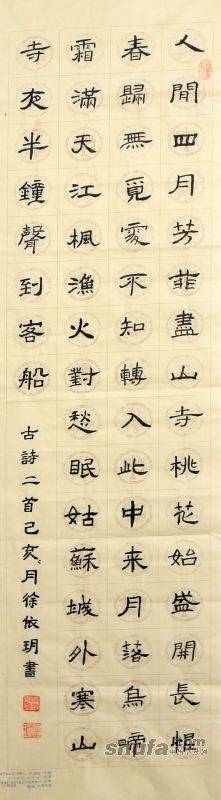 人間四月芳菲盡山寺桃花始盛開長恨
春歸無覓處不知轉入此中来月落烏啼
霜滿天江楓漁火對愁眠姑蘇城外寒山
寺夜半鐘聲到客船
古詩二首己亥月徐依玥書